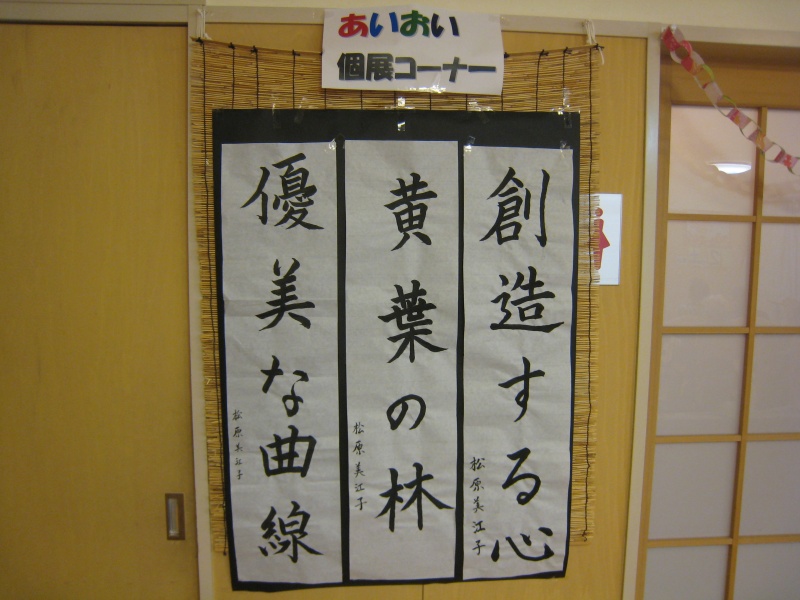 あいおい
個展コーナー
創造する心
松原美江子
黄葉の林
松原美江子
優美な曲線
松原美江子